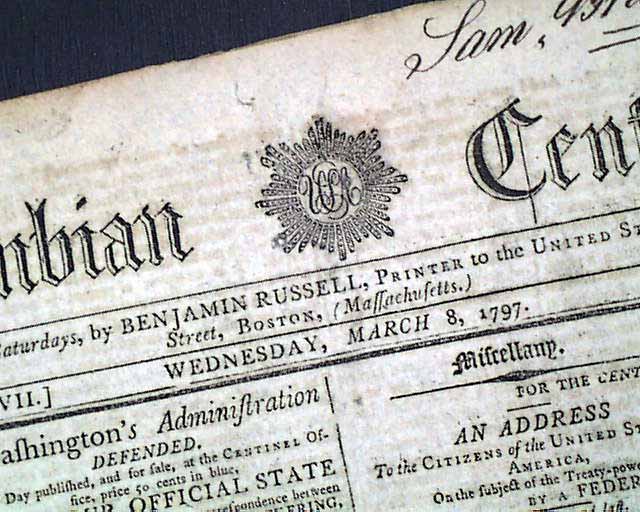 Sam,
mbian Cent
Saturdays, by BENJAMIN RUSSELL, PRINTER to the UNITED ST
Street, BOSTON, (Maſſachuſetts.)
WEDNESDAY, MARCH 8, 1797.
VII.]
ashington's Adminiſtration
DEFENDED.
Day publiſhed, and for ſale, at the CENTINEL OF-
fice, price 50 cents in blue,
OUR OFFICIAL STATE
reſpondence between
ERING,
Miſcellany.
FOR THE CENT
AN ADDRESS
To the CITIZENS of the UNITED ST
AMERICA,
On the ſubject of the Treaty-powe
BY A FEDER
laſt.